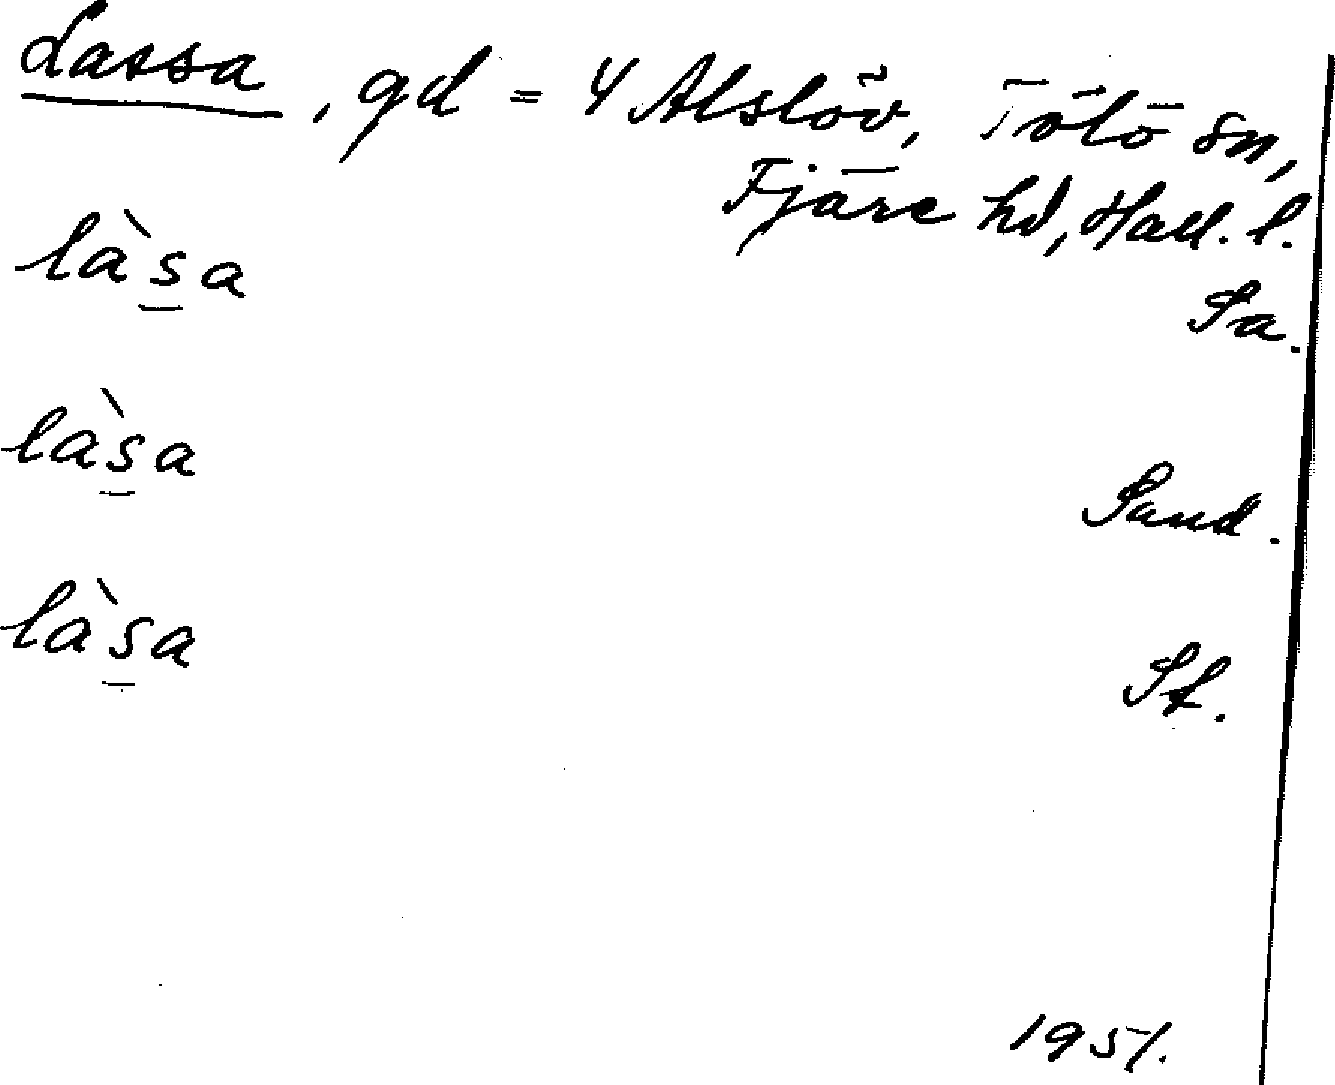 Lassa, gd = 4 Alslöv, Tölö sn,
Fjäre hd, Hall. l.
làs̲a
Sa.
làs̲a
Sand.
làs̲a
St.
1951.